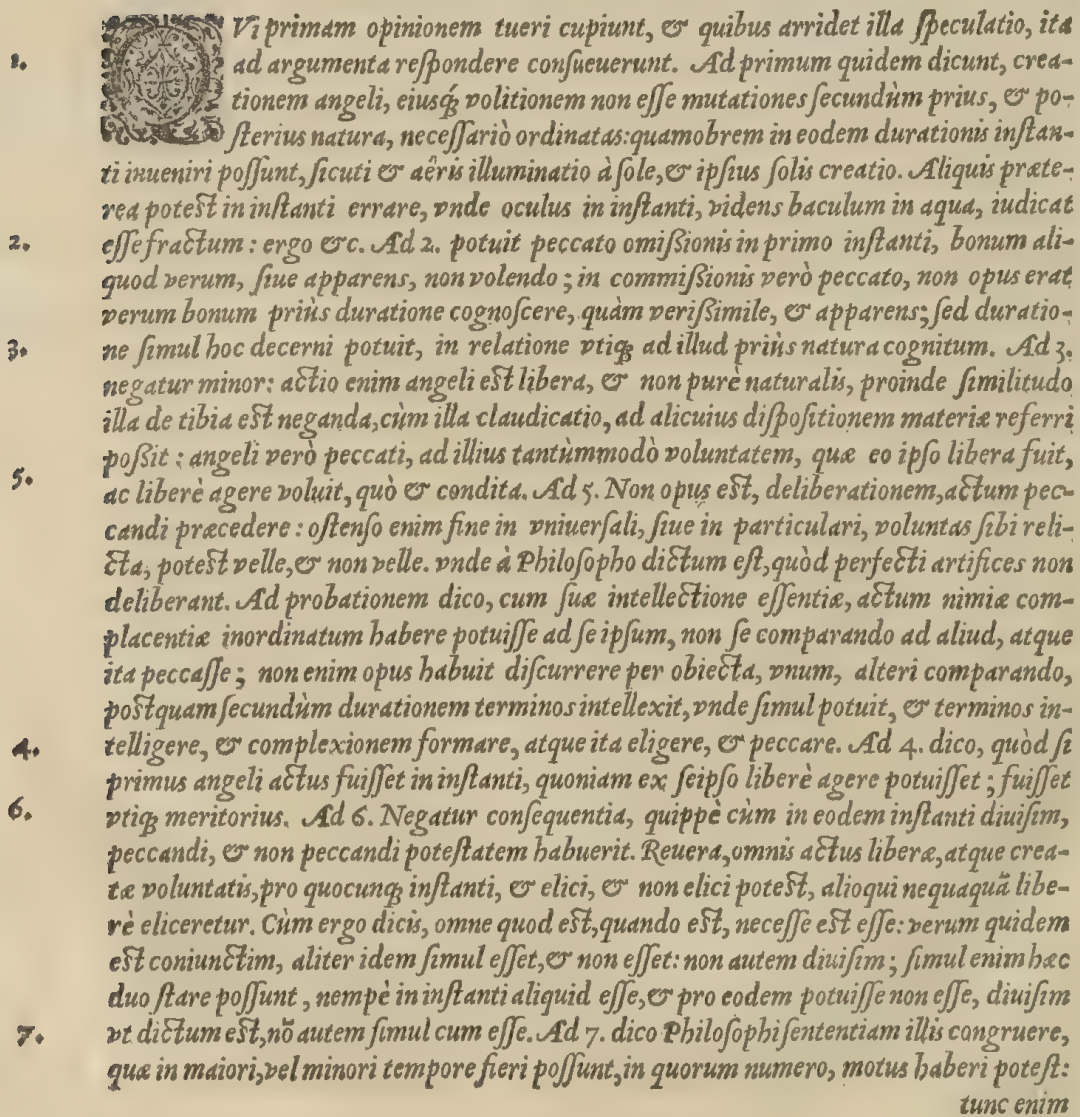 QVi primam opinionem tueri cupiunt, & quibus arridet illa ſpeculatio, ita
1. ad argumenta reſpondere conſueuerunt. Ad primum quidem dicunt, crea-
tionem angeli, eiusq́; volitionem non eſſe mutationes ſecundùm prius, & po-
ſterius natura, neceſſariò ordinatas: quamobrem in eodem durationis inſtan-
ti inueniri poſſunt, ſicuti & aêris illuminatio à ſole, & ipſius ſolis creatio. Aliquis præte-
rea poteſt in inſtanti errare, vnde oculus in inſtanti, videns baculum in aqua, iudicat
2. eſſe fractum: ergo &c. Ad 2. potuit peccato omiſsionis in primo inſtanti, bonum ali-
quod verum, ſiue apparens, non volendo; in commiſsionis verò peccato, non opus erat
verum bonum priùs duratione cognoſcere, quàm veriſsimile, & apparens; ſed duratio-
3. ne ſimul hoc decerni potuit, in relatione vtiq; ad illud priùs natura cognitum. Ad 3.
negatur minor: actio enim angeli eſt libera, & non purè naturalis, proinde ſimilitudo
illa de tibia eſt neganda, cùm illa claudicatio, ad alicuius diſpoſitionem materiæ referri
poſsit: angeli verò peccati, ad illius tantùmmodò voluntatem, quæ eo ipſo libera fuit,
5. ac liberè agere voluit, quò & condita. Ad 5. Non opus eſt, deliberationem, actum pec-
candi præcedere: oſtenſo enim fine in vniuerſali, ſiue in particulari, voluntas ſibi reli-
cta, poteſt velle, & non velle. vnde à Philoſopho dictum eſt, quòd perfecti artifices non
deliberant. Ad probationem dico, cum ſuæ intellectione eſſentiæ, actum nimiæ com-
placentiæ inordinatum habere potuiſſe ad ſe ipſum, non ſe comparando ad aliud, atque
ita peccaſſe; non enim opus habuit diſcurrere per obiecta, vnum, alteri comparando,
poſtquam ſecundùm durationem terminos intellexit, vnde ſimul potuit, & terminos in-
4. telligere, & complexionem formare, atque ita eligere, & peccare. Ad 4. dico, quòd ſi
primus angeli actus fuiſſet in inſtanti, quoniam ex ſeipſo liberè agere potuiſſet; fuiſſet
6. vtiq; meritorius. Ad 6. Negatur conſequentia, quippè cùm in eodem inſtanti diuiſim,
peccandi, & non peccandi poteſtatem habuerit. Reuera, omnis actus liberæ, atque crea-
tæ voluntatis, pro quocunq; inſtanti, & elici, & non elici poteſt, alioqui nequaquã libe-
rè eliceretur. Cùm ergo dicis, omne quod eſt, quando eſt, neceſſe eſt eſſe: verum quidem
eſt coniunctim, aliter idem ſimul eſſet, & non eſſet: non autem diuiſim; ſimul enim hæc
duo ſtare poſſunt, nempè in inſtanti aliquid eſſe, & pro eodem potuiſſe non eſſe, diuiſim
7. vt dictum eſt, nõ autem ſimul cum eſſe. Ad 7. dico Philoſophi ſententiam illis congruere,
quæ in maiori, vel minori tempore fieri poſſunt, in quorum numero, motus haberi poteſt:
tunc enim